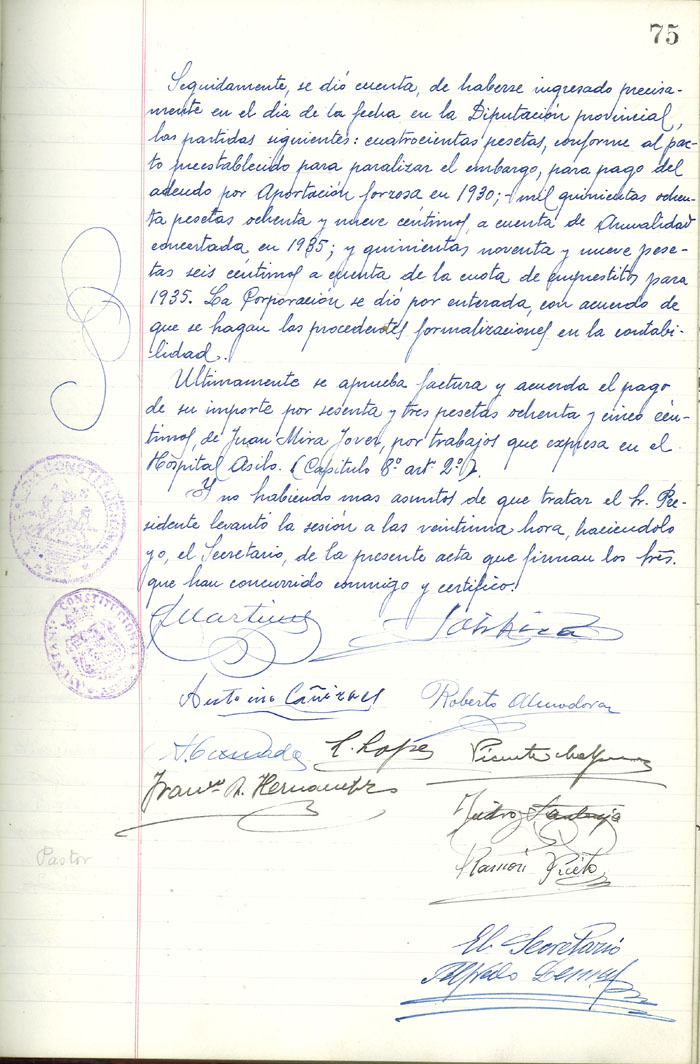 75
Seguidamente, se dió cuenta, de haberse ingresado precisa-
mente en el día de la fecha en la Diputación provincial,
las partidas siguientes: cuatrocientas pesetas, conforme al pac-
to preestablecido para paralizar el embargo, para pago del
adeudo por Aportación forzosa en 1930; mil quinientas ochen-
ta pesetas ochenta y nueve céntimos, a cuenta de Anualidad
concertada, en 1935; y quinientas noventa y nueve pese-
tas seis céntimos a cuenta de la cuota de empréstitos para
1935. La Corporación se dió por enterada, con acuerdo de
que se hagan las procedentes formalizaciones en la contabi-
lidad.
Ultimamente se aprueba factura y acuerda el pago
de su importe por sesenta y tres pesetas ochenta y cinco cén-
timos, de Juan Mira Jover, por trabajos que expresa en el
Hospital Asilo. (Capítulo 8º artº 2º).
Y no habiendo mas asuntos de que tratar el Sr. Pre-
sidente levantó la sesión a las veintiuna hora, haciéndolo
yo, el Secretario, de la presente acta que firman los Sres.
que han concurrido conmigo y certifico.
Martinez
Antonio Cañizares Roberto Almodovar
L. Lopez Vicente
Hernandez
Isidro Santonja
Pastor
Ramón Prieto
El Secretario
Alfredo
CONSTITUCIONAL
CONSTITUCIONAL